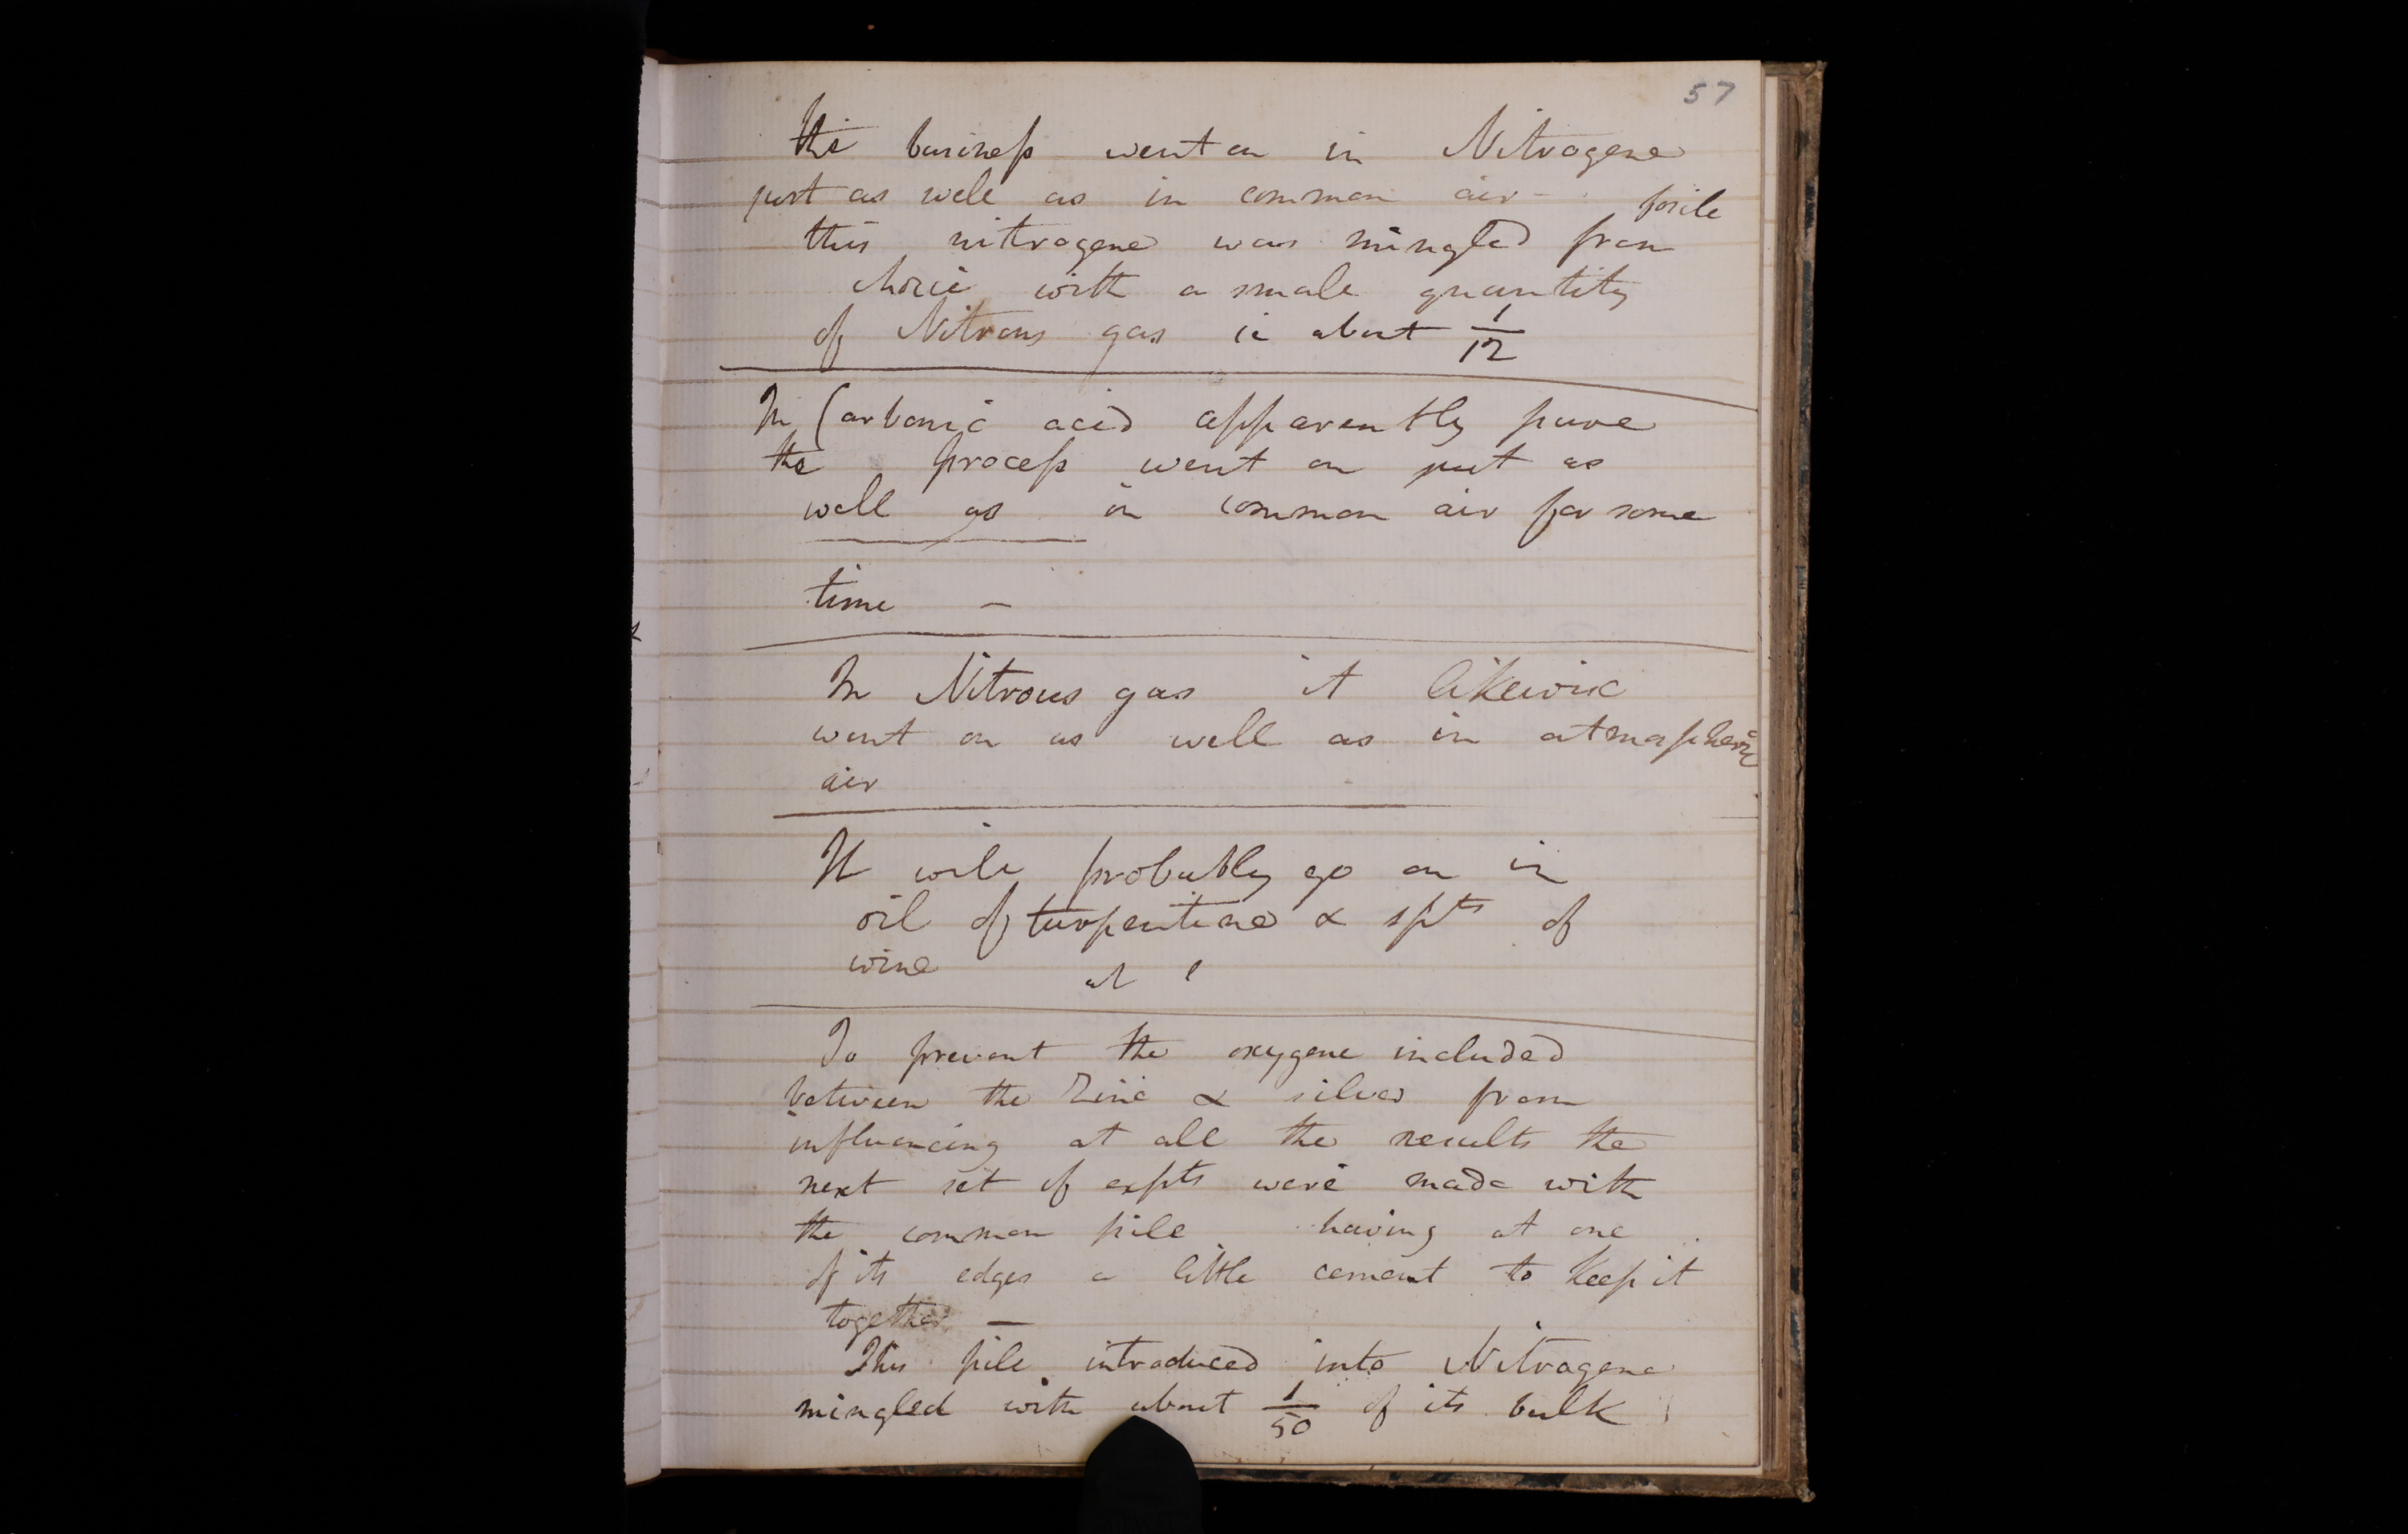 57
The business went on in Nitrogene
just as well as in common air -
this nitrogene was mingled from
choice with a small quantity
of Nitrous gas ie about 1/12
In Carbonic acid apparently pure
the process went on just as
well as in common air for some
time –
In Nitrous gas it likewise
went on as well as in atmospheric
air
It will probably go on in
oil of turpentine & spts of
wine
To prevent the oxygene included
between the Zinc & silver from
influencing at all the results the
next set of expts were made with
the common pile having at one
of its edges a little cement to keep it
together —
This pile introduced into Nitrogene
mingled with about 1/50 of its bulk